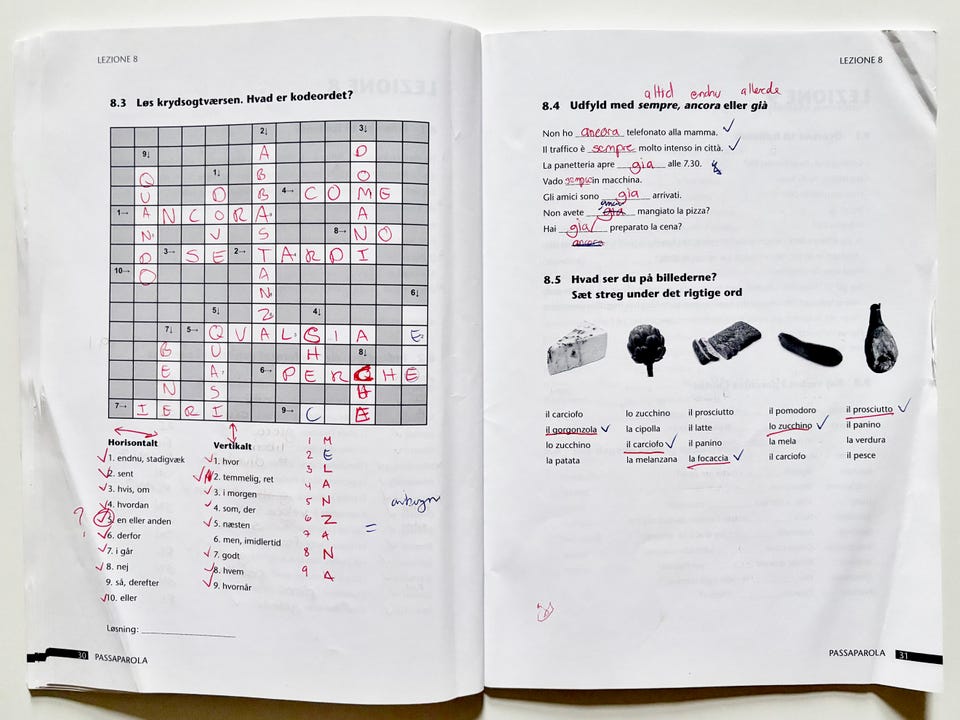 LEZIONE 8
8.3 Løs krydsogtværsen. Hvad er kodeordet?
2↓ 3↓
9↓ A D
1↓ B O
Q B
U O B 4→ C O M E
1→ A N C O R A A
N V S 8→ N O
D 3→ S E 2→ T A R D I
10→ O A
N 6↓
5↓ Z 4↓
7↓ 5→ Q V A L S I A E
B U H 8↓
E A 6→ P E R C H E
N S H
7→ I E R I 9→ C E
Horisontalt
1. endnu, stadigvæk
2. sent
3. hvis, om
4. hvordan
? 5. en eller anden
6. derfor
7. i går
8. nej
9. så, derefter
10. eller
Vertikalt
1. hvor
2. temmelig, ret
3. i morgen
4. som, der
5. næsten
6. men, imidlertid
7. godt
8. hvem
9. hvornår
1 M
2 E
3 L
4 A
5 N
6 Z
7 A
8 N
9 A
=
Løsning:
30 PASSAPAROLA
LEZIONE 8
altid endnu allerede
8.4 Udfyld med sempre, ancora eller già
Non ho ancora telefonato alla mamma.
Il traffico è sempre molto intenso in città.
La panetteria apre gia alle 7.30.
Vado sempre in macchina.
Gli amici sono gia arrivati.
Non avete gia mangiato la pizza?
Hai gia preparato la cena?
ancora
8.5 Hvad ser du på billederne?
Sæt streg under det rigtige ord
il carciofo
il gorgonzola
lo zucchino
la patata
lo zucchino
la cipolla
il carciofo
la melanzana
il prosciutto
il latte
il panino
la focaccia
il pomodoro
lo zucchino
la mela
il carciofo
il prosciutto
il panino
la verdura
il pesce
PASSAPAROLA 31